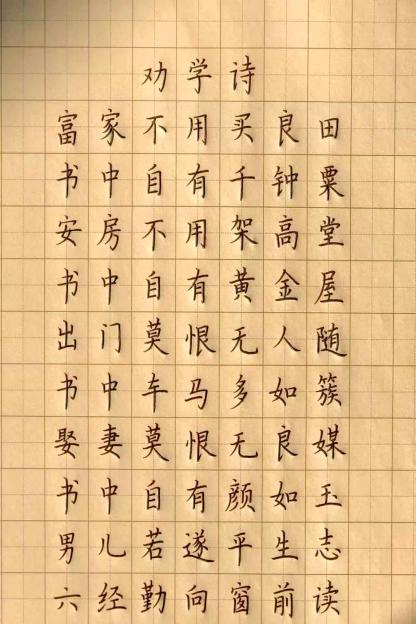 劝学诗
富家不用买良田
书中自有千钟粟
安房不用架高堂
书中自有黄金屋
出门莫恨无人随
书中车马多如簇
娶妻莫恨无良媒
书中自有颜如玉
男儿若遂平生志
六经勤向窗前读